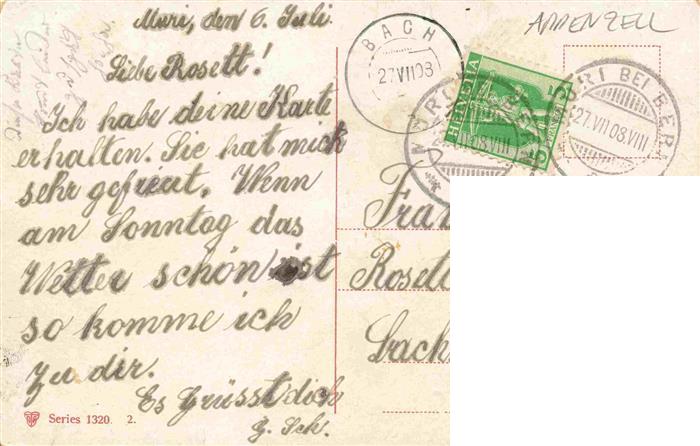 Muri, den 6. Juli.
Liebe Rosett!
Ich habe deine Karte
erhalten. Sie hat mich
sehr gefreut. Wenn
am Sonntag das
Wetter schön ist
so komme ich
zu dir.
Es Grüsst dich
G. Sch.
Series 1320. 2.
BACH
27 VII 08
HELVETIA
5
5
RI BEI BER
27.VII 08.VIII
APPENZELL
Fran
Rosett
Bach